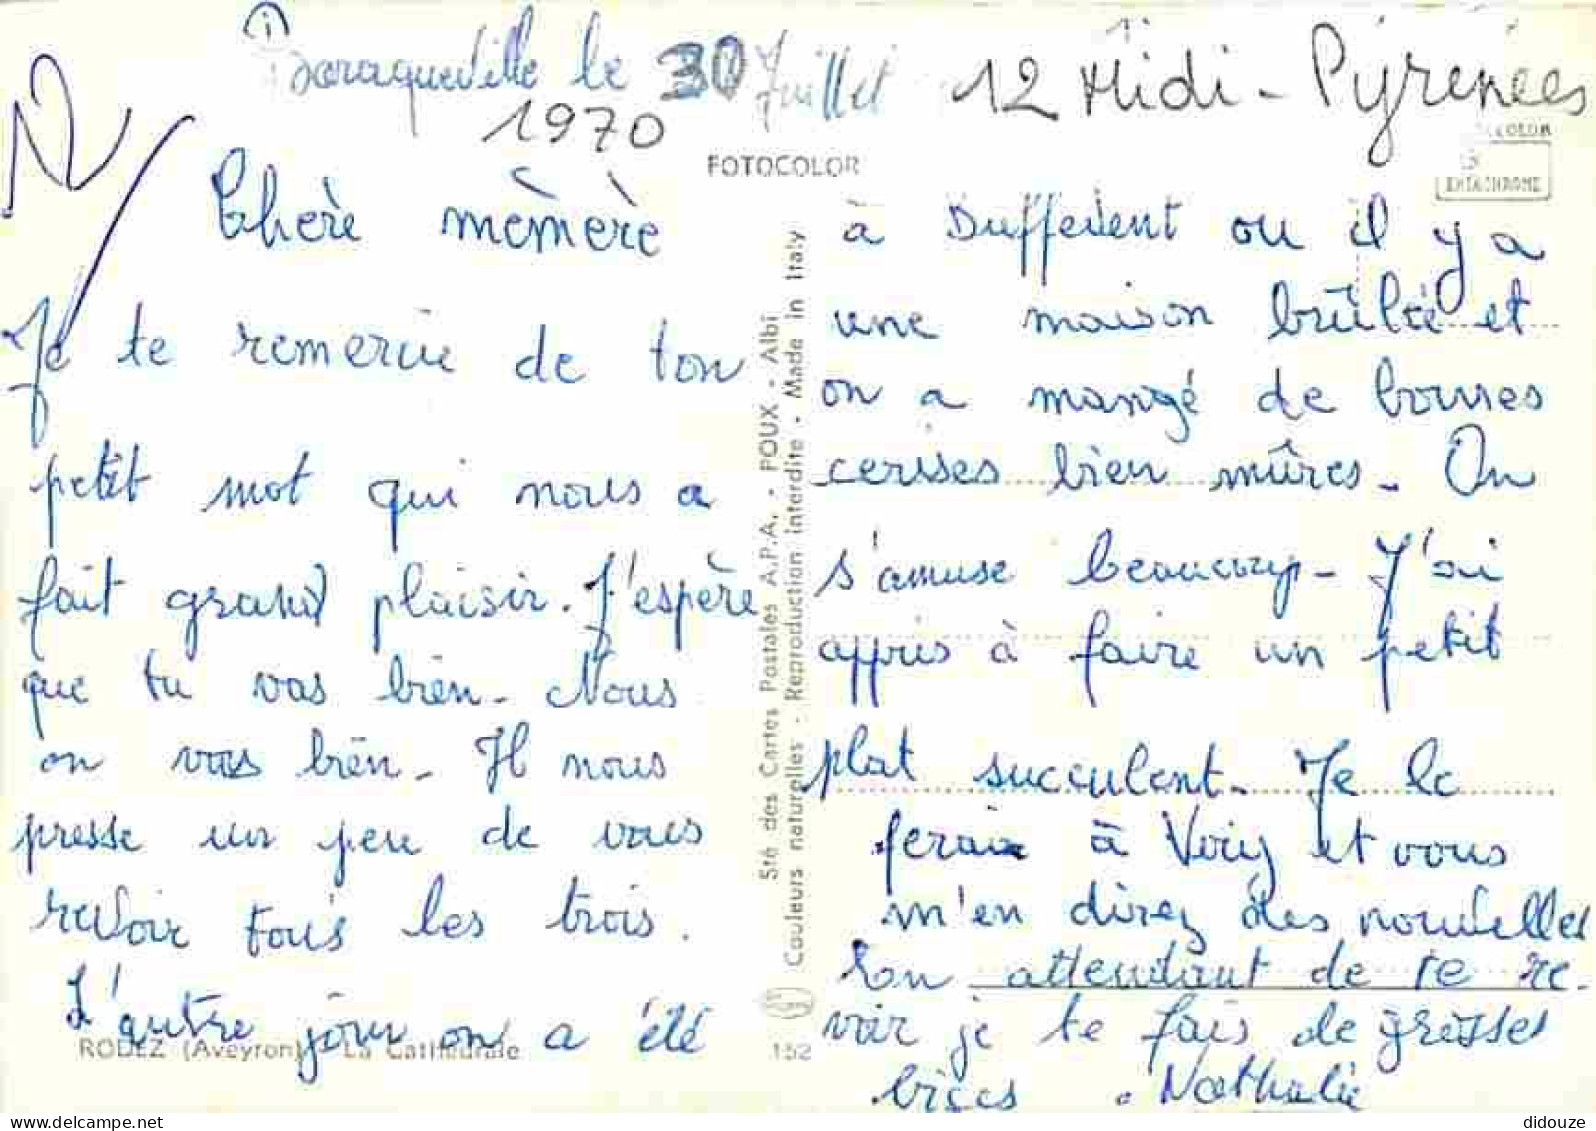 Baraqueville le 30 Juillet
1970
12 Midi-Pyrénées
12
FOTOCOLOR
Chère mèmère
Je te remercie de ton
petit mot qui nous a
fait grand plaisir. J'espère
que tu vas bien. Nous
on vas bien. Il nous
presse un peu de vous
revoir tous les trois.
L'autre jour on a été
RODEZ (Aveyron) - La Cathédrale
152
Sté des Cartes Postales A.P.A. - POUX - Albi
Couleurs naturelles - Reproduction interdite - Made in Italy
à Duffevent ou il y a
une maison brûlée et
on a mangé de bonnes
cerises bien mûres. On
s'amuse beaucoup. J'ai
appris à faire un petit
plat succulent. Je le
ferai à Veriz et vous
m'en direz des nouvelles
En attendant de te re-
voir je te fais de grosses
bises. Nathalie
didouze